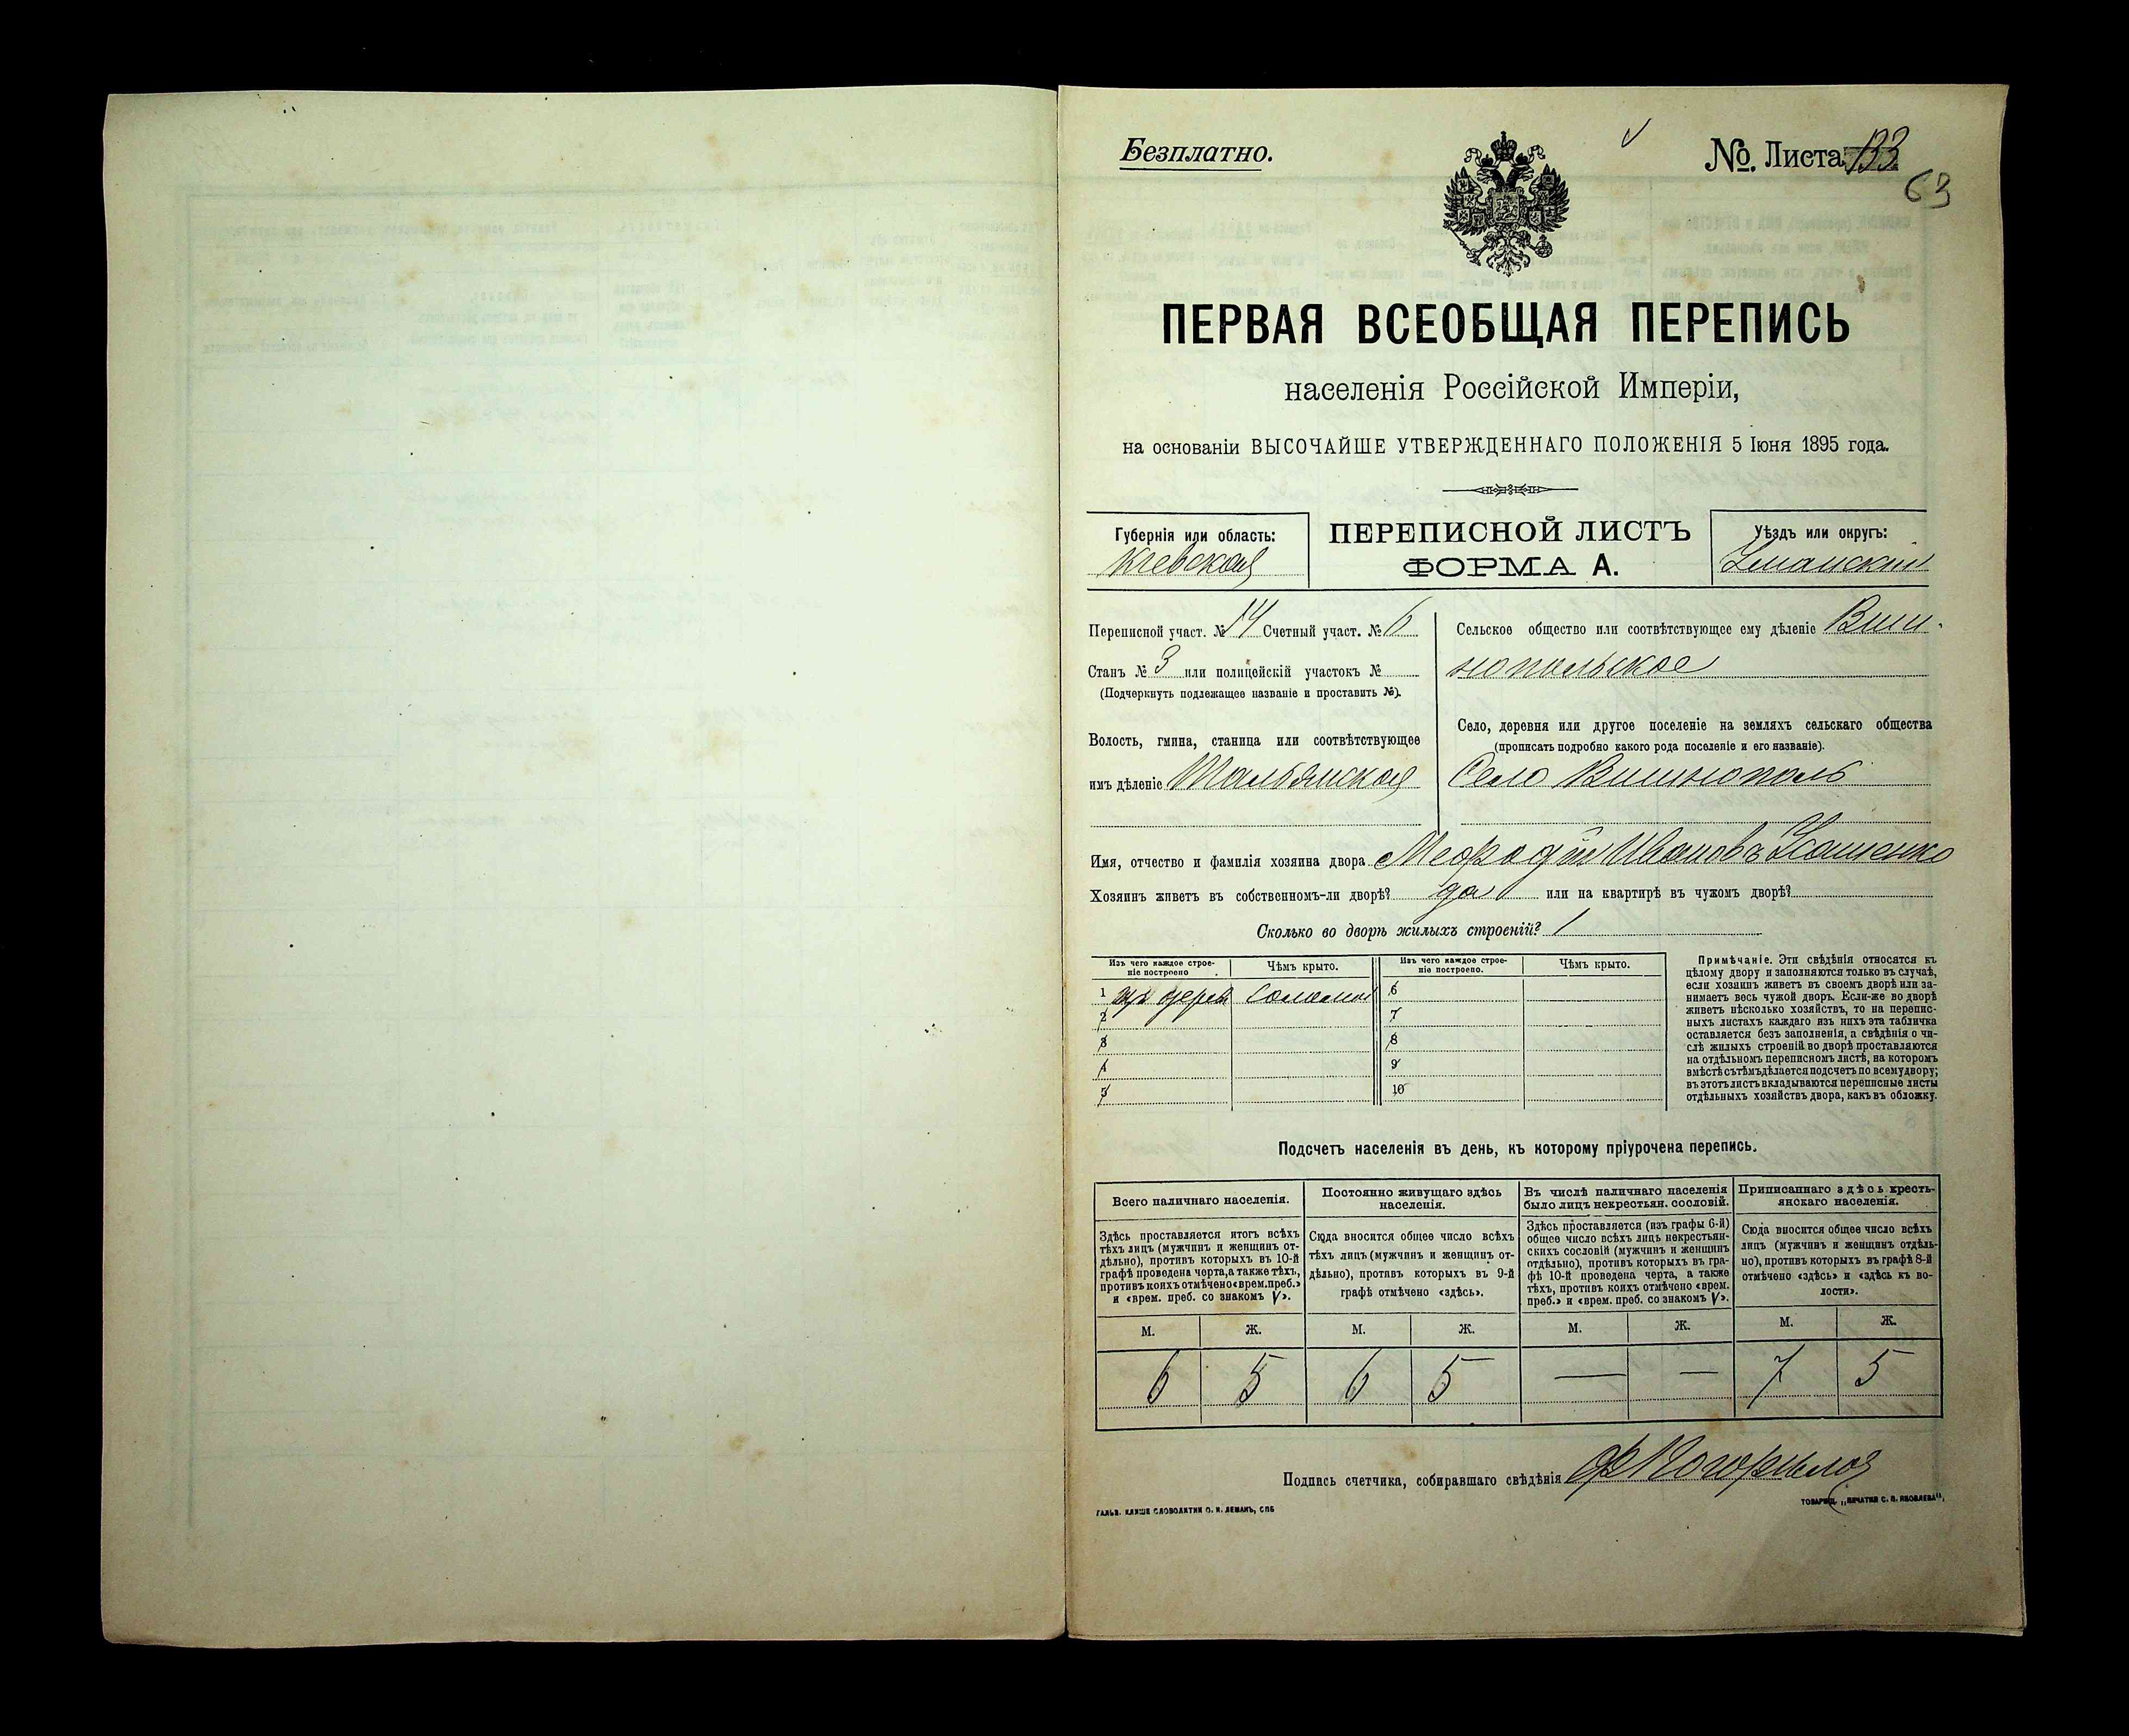 Безплатно.
№. Листа 133
63
ПЕРВАЯ ВСЕОБЩАЯ ПЕРЕПИСЬ
населенія Россійской Имперіи,
на основаніи ВЫСОЧАЙШЕ УТВЕРЖДЕННАГО ПОЛОЖЕНІЯ 5 Іюня 1895 года.
Губернія или область:
Кіевская
ПЕРЕПИСНОЙ ЛИСТЪ
ФОРМА А.
Уѣздъ или округъ:
Уманскій
Переписной участ. № 14 Счетный участ. № 6
Станъ № 3 или полицейскій участокъ №
(Подчеркнуть подлежащее названіе и проставить №).
Волость, гмина, станица или соотвѣтствующее
имъ дѣленіе Тальянская
Сельское общество или соотвѣтствующее ему дѣленіе Виш-
нопольское
Село, деревня или другое поселеніе на земляхъ сельскаго общества
(прописать подробно какого рода поселеніе и его названіе).
Село Вишнополь
Имя, отчество и фамилія хозяина двора Мефодій Ивановъ
Хозяинъ живетъ въ собственномъ-ли дворѣ? да или на квартирѣ въ чужомъ дворѣ?
Сколько во дворѣ жилыхъ строеній? 1
Изъ чего каждое строе-
ніе построено.
Чѣмъ крыто.
Изъ чего каждое строе-
ніе построено.
Чѣмъ крыто.
1 изъ дерева соломою
2
3
4
5
6
7
8
9
10
Примѣчаніе. Эти свѣдѣнія относятся къ
цѣлому двору и заполняются только въ случаѣ,
если хозяинъ живетъ въ своемъ дворѣ или за-
нимаетъ весь чужой дворъ. Если-же во дворѣ
живетъ нѣсколько хозяйствъ, то на перепис-
ныхъ листахъ каждаго изъ нихъ эта табличка
оставляется безъ заполненія, а свѣдѣнія о чи-
слѣ жилыхъ строеній во дворѣ проставляются
на отдѣльномъ переписномъ листѣ, на которомъ
вмѣстѣ съ тѣмъ дѣлается подсчетъ по всему двору;
въ этотъ листъ вкладываются переписные листы
отдѣльныхъ хозяйствъ двора, какъ въ обложку.
Подсчетъ населенія въ день, къ которому пріурочена перепись.
Всего наличнаго населенія.
Здѣсь проставляется итогъ всѣхъ
тѣхъ лицъ (мужчинъ и женщинъ от-
дѣльно), противъ которыхъ въ 10-й
графѣ проведена черта, а также тѣхъ,
противъ коихъ отмѣчено «врем. преб.»
и «врем. преб. со знакомъ V».
Постоянно живущаго здѣсь
населенія.
Сюда вносится общее число всѣхъ
тѣхъ лицъ (мужчинъ и женщинъ от-
дѣльно), противъ которыхъ въ 9-й
графѣ отмѣчено «здѣсь».
Въ числѣ наличнаго населенія
было лицъ некрестьян. сословій.
Здѣсь проставляется (изъ графы 6-й)
общее число всѣхъ лицъ некрестьян-
скихъ сословій (мужчинъ и женщинъ
отдѣльно), противъ которыхъ въ гра-
фѣ 10-й проведена черта, а также
тѣхъ, противъ коихъ отмѣчено «врем.
преб.» и «врем. преб. со знакомъ V».
Приписаннаго здѣсь кресть-
янскаго населенія.
Сюда вносится общее число всѣхъ
лицъ (мужчинъ и женщинъ отдѣль-
но), противъ которыхъ въ графѣ 8-й
отмѣчено «здѣсь» и «здѣсь къ во-
лости».
М. Ж. М. Ж. М. Ж. М. Ж.
6 5 6 5 — — 7 5
Подпись счетчика, собиравшаго свѣдѣнія
ГАЛЬВ. КЛИШЕ СЛОВОЛИТНИ О. И. ЛЕМАНЪ, СПБ
ТОВАРИЩ. „ПЕЧАТНЯ С. П. ЯКОВЛЕВА".